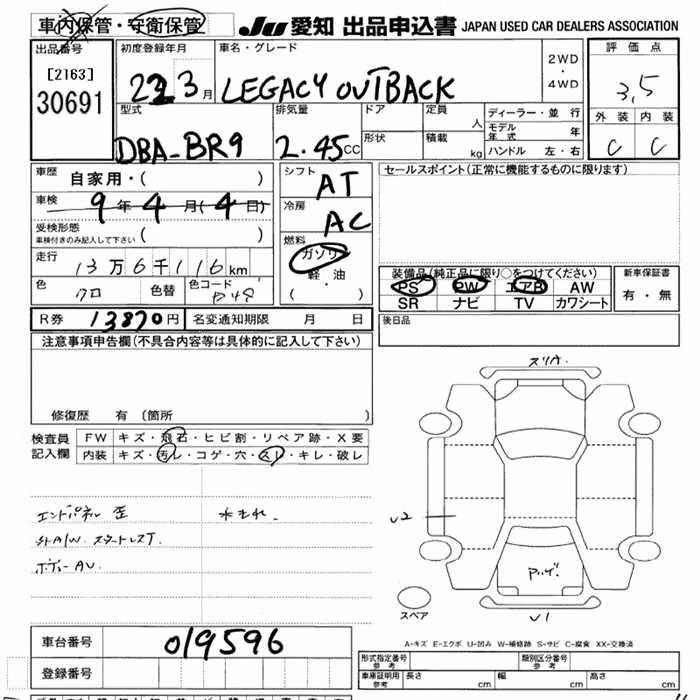 車内保管・守衛保管 JU 愛知 出品申込書 JAPAN USED CAR DEALERS ASSOCIATION
出品番号 初度登録年月 車名・グレード 2WD・4WD 評価点
[2163] 30691 3月 LEGACY OUTBACK 3.5
型式 排気量 ドア 定員 人 ディーラー・並行 外装 内装
DBA-BR9 2.45CC 形状 積載 kg モデル年式 年 C C
ハンドル 左・右
車歴 自家用・( ) シフト AT セールスポイント(正常に機能するものに限ります)
車検 9年4月(4日) 冷房 AC
受検形態 車検付きのみ記入して下さい ( ) 燃料
走行 13万6千116km ガソリン 装備品(純正品に限り○をつけてください) 新車保証書
軽・油 PS PW エアB AW 有・無
色 クロ 色替 色コード ( ・ ) SR ナビ TV カワシート
R券 13870円 名変通知期限 月 日 後日品
注意事項申告欄(不具合内容等は具体的に記入して下さい)
修復歴 有(箇所 )
検査員 FW キズ・飛石・ヒビ割・リペア跡・X要
記入欄 内装 キズ・汚レ・コゲ・穴・スレ・キレ・破レ
スリA
エンドパネル 歪
ボディーAV
U2
スペア
U1
A-キズ E-エクボ U-凹み W-補修跡 S-サビ C-腐食 XX-交換済
車台番号 019596 形式指定番号 参考 類別区分番号 参考
登録番号 車庫証明用 参考 長さ cm 幅 cm 高さ cm